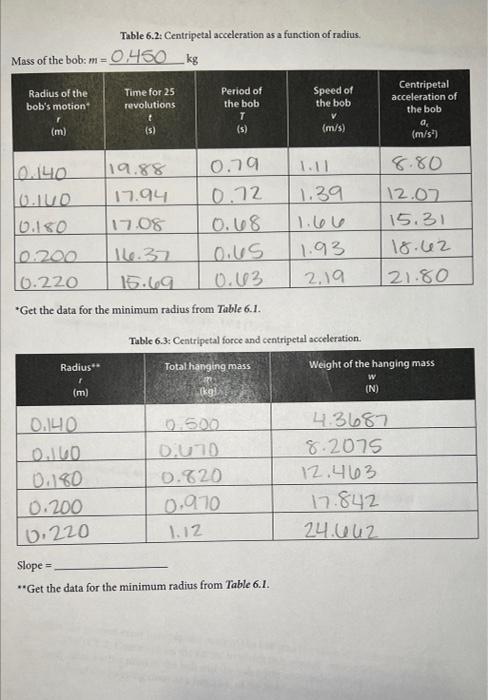 Table 6.2: Centripetal acceleration as a function of radius.
Mass of the bob: m = 0.450 kg
Radius of the bob's motion* r (m) Time for 25 revolutions t (s) Period of the bob T (s) Speed of the bob v (m/s) Centripetal acceleration of the bob ac (m/s²)
0.140 19.88 0.79 1.11 8.80
0.160 17.94 0.72 1.39 12.07
0.180 17.08 0.68 1.66 15.31
0.200 16.37 0.65 1.93 18.62
0.220 15.69 0.63 2.19 21.80
*Get the data for the minimum radius from Table 6.1.
Table 6.3: Centripetal force and centripetal acceleration.
Radius** r (m) Total hanging mass m (kg) Weight of the hanging mass w (N)
0.140 0.500 4.3687
0.160 0.670 8.2075
0.180 0.820 12.463
0.200 0.970 17.842
0.220 1.12 24.662
Slope =
**Get the data for the minimum radius from Table 6.1.